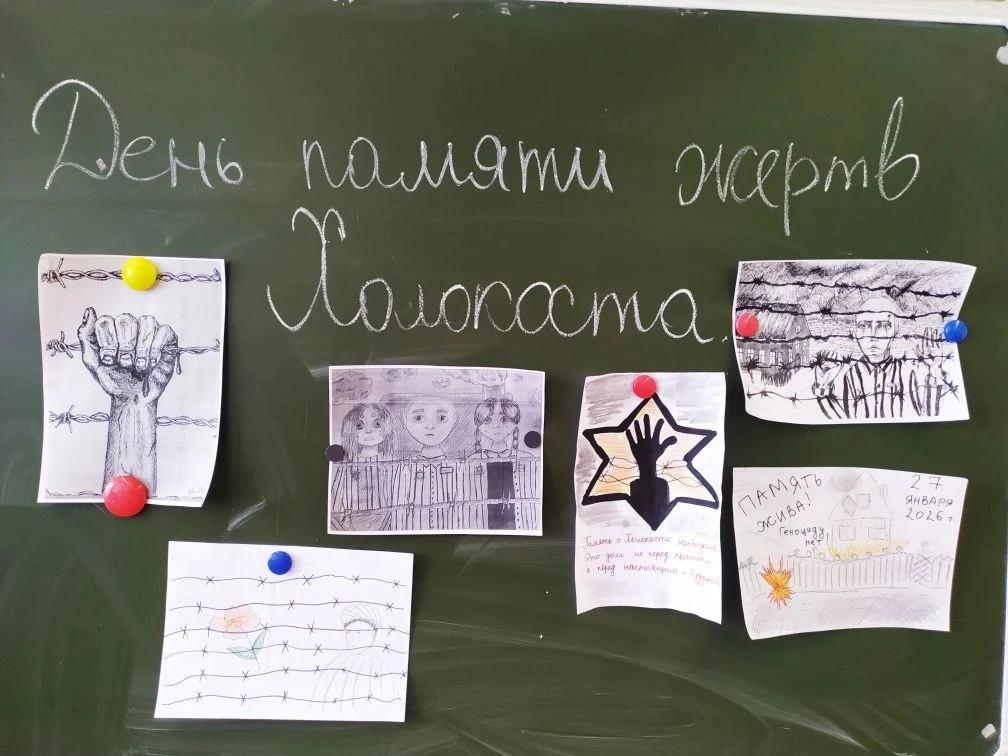 День памяти жертв
Холокоста
Память о Холокосте необходима
Это долг не перед прошлым
а перед настоящим и будущим
ПАМЯТЬ
ЖИВА!
Геноциду
нет!
27
ЯНВАРЯ
2026 г.